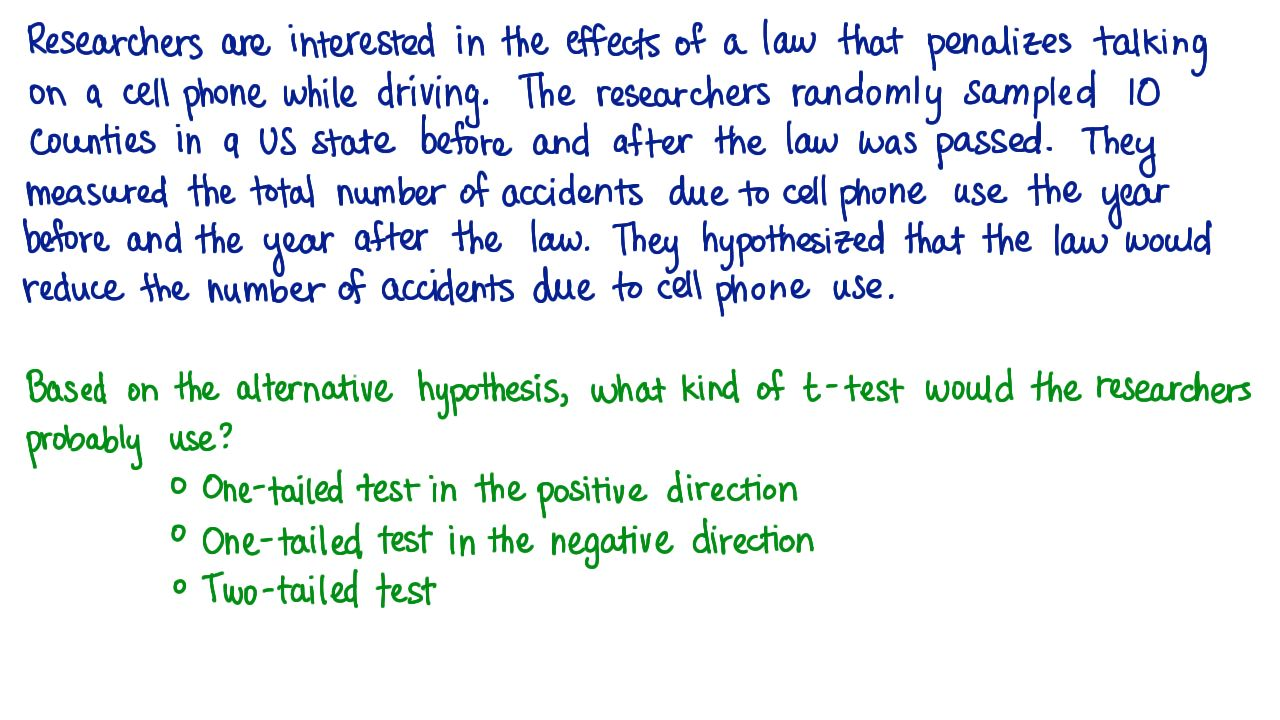 Researchers are interested in the effects of a law that penalizes talking
on a cell phone while driving. The researchers randomly sampled 10
counties in a US state before and after the law was passed. They
measured the total number of accidents due to cell phone use the year
before and the year after the law. They hypothesized that the law would
reduce the number of accidents due to cell phone use.
Based on the alternative hypothesis, what kind of t-test would the researchers
probably use?
o One-tailed test in the positive direction
o One-tailed test in the negative direction
o Two-tailed test